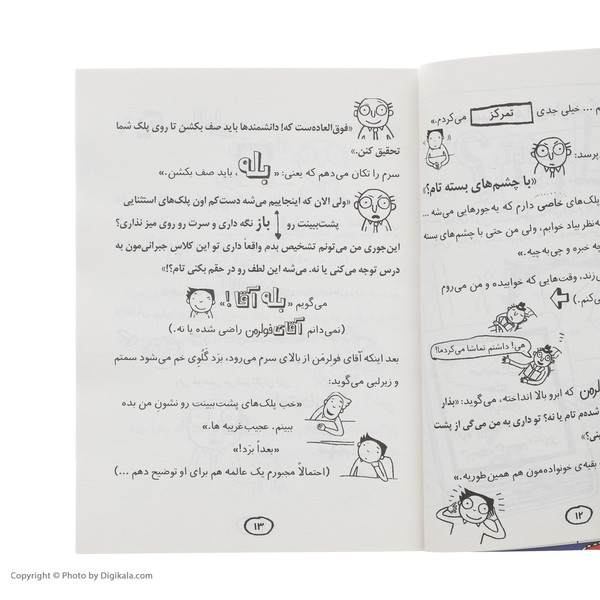 م ... خیلی جدی تمرکز می‌کردم.»
پرسد:
«با چشم‌های بسته تام؟»
پلک‌های خاصی دارم که یه‌جورهایی می‌شه ...
نظر بیاد خوابم، ولی من حتی با چشم‌های بسته
چه خبره و چی‌به‌چیه.»
زند، وقت‌هایی که خوابیده و من می‌روم
می‌کنم.)
هی! داشتم تماشا می‌کردما!
فولرمن که ابرو بالا انداخته، می‌گوید: «بذار
شده‌م تام یا نه؟ تو داری به من می‌گی از پشت
بینی؟»
بقیه‌ی خونواده‌مون هم همین‌طوریه.»
۱۲
«فوق‌العاده‌ست که! دانشمندها باید صف بکشن تا روی پلک شما
تحقیق کنن.»
سرم را تکان می‌دهم که یعنی: «بله، باید صف بکشن.»
«ولی الان که اینجاییم می‌شه دست‌کم اون پلک‌های استثنایی
پشت‌ببینت رو باز نگه داری و سرت رو روی میز نذاری؟
این‌جوری من می‌تونم تشخیص بدم واقعاً داری تو این کلاسِ جبرانی‌مون به
درس توجه می‌کنی یا نه. می‌شه این لطف رو در حقم بکنی تام؟!»
می‌گویم «بله آقا!»
(نمی‌دانم آقای فولرمن راضی شده یا نه.)
بعد اینکه آقای فولرمَن از بالای سرم می‌رود، برَد گَلُوی خم می‌شود سمتم
و زیرلبی می‌گوید:
«خب پلک‌های پشت‌ببینت رو نشونِ من بده
ببینم. عجیب‌غریبه ها.»
«بعداً برَد!»
(احتمالاً مجبورم یک عالمه هم برای او توضیح دهم ...)
۱۳
Copyright © Photo by Digikala.com